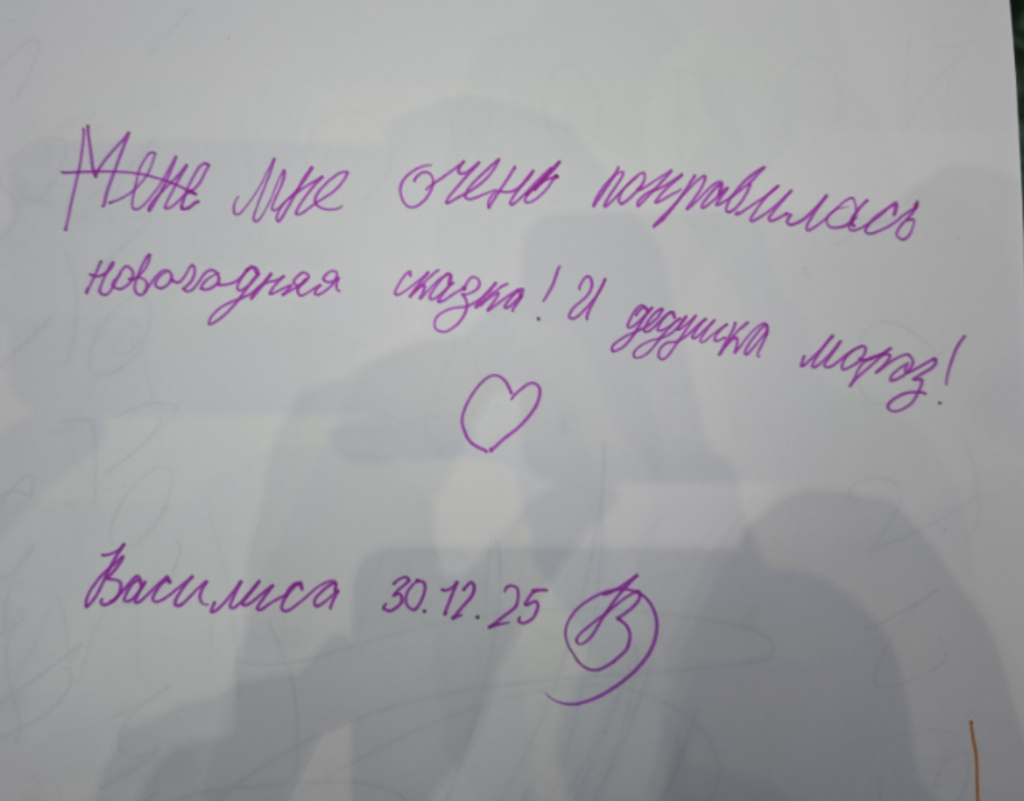 Мене мне очень понравилась
новогодняя сказка! И дедушка мороз!
Василиса 30.12.25 В